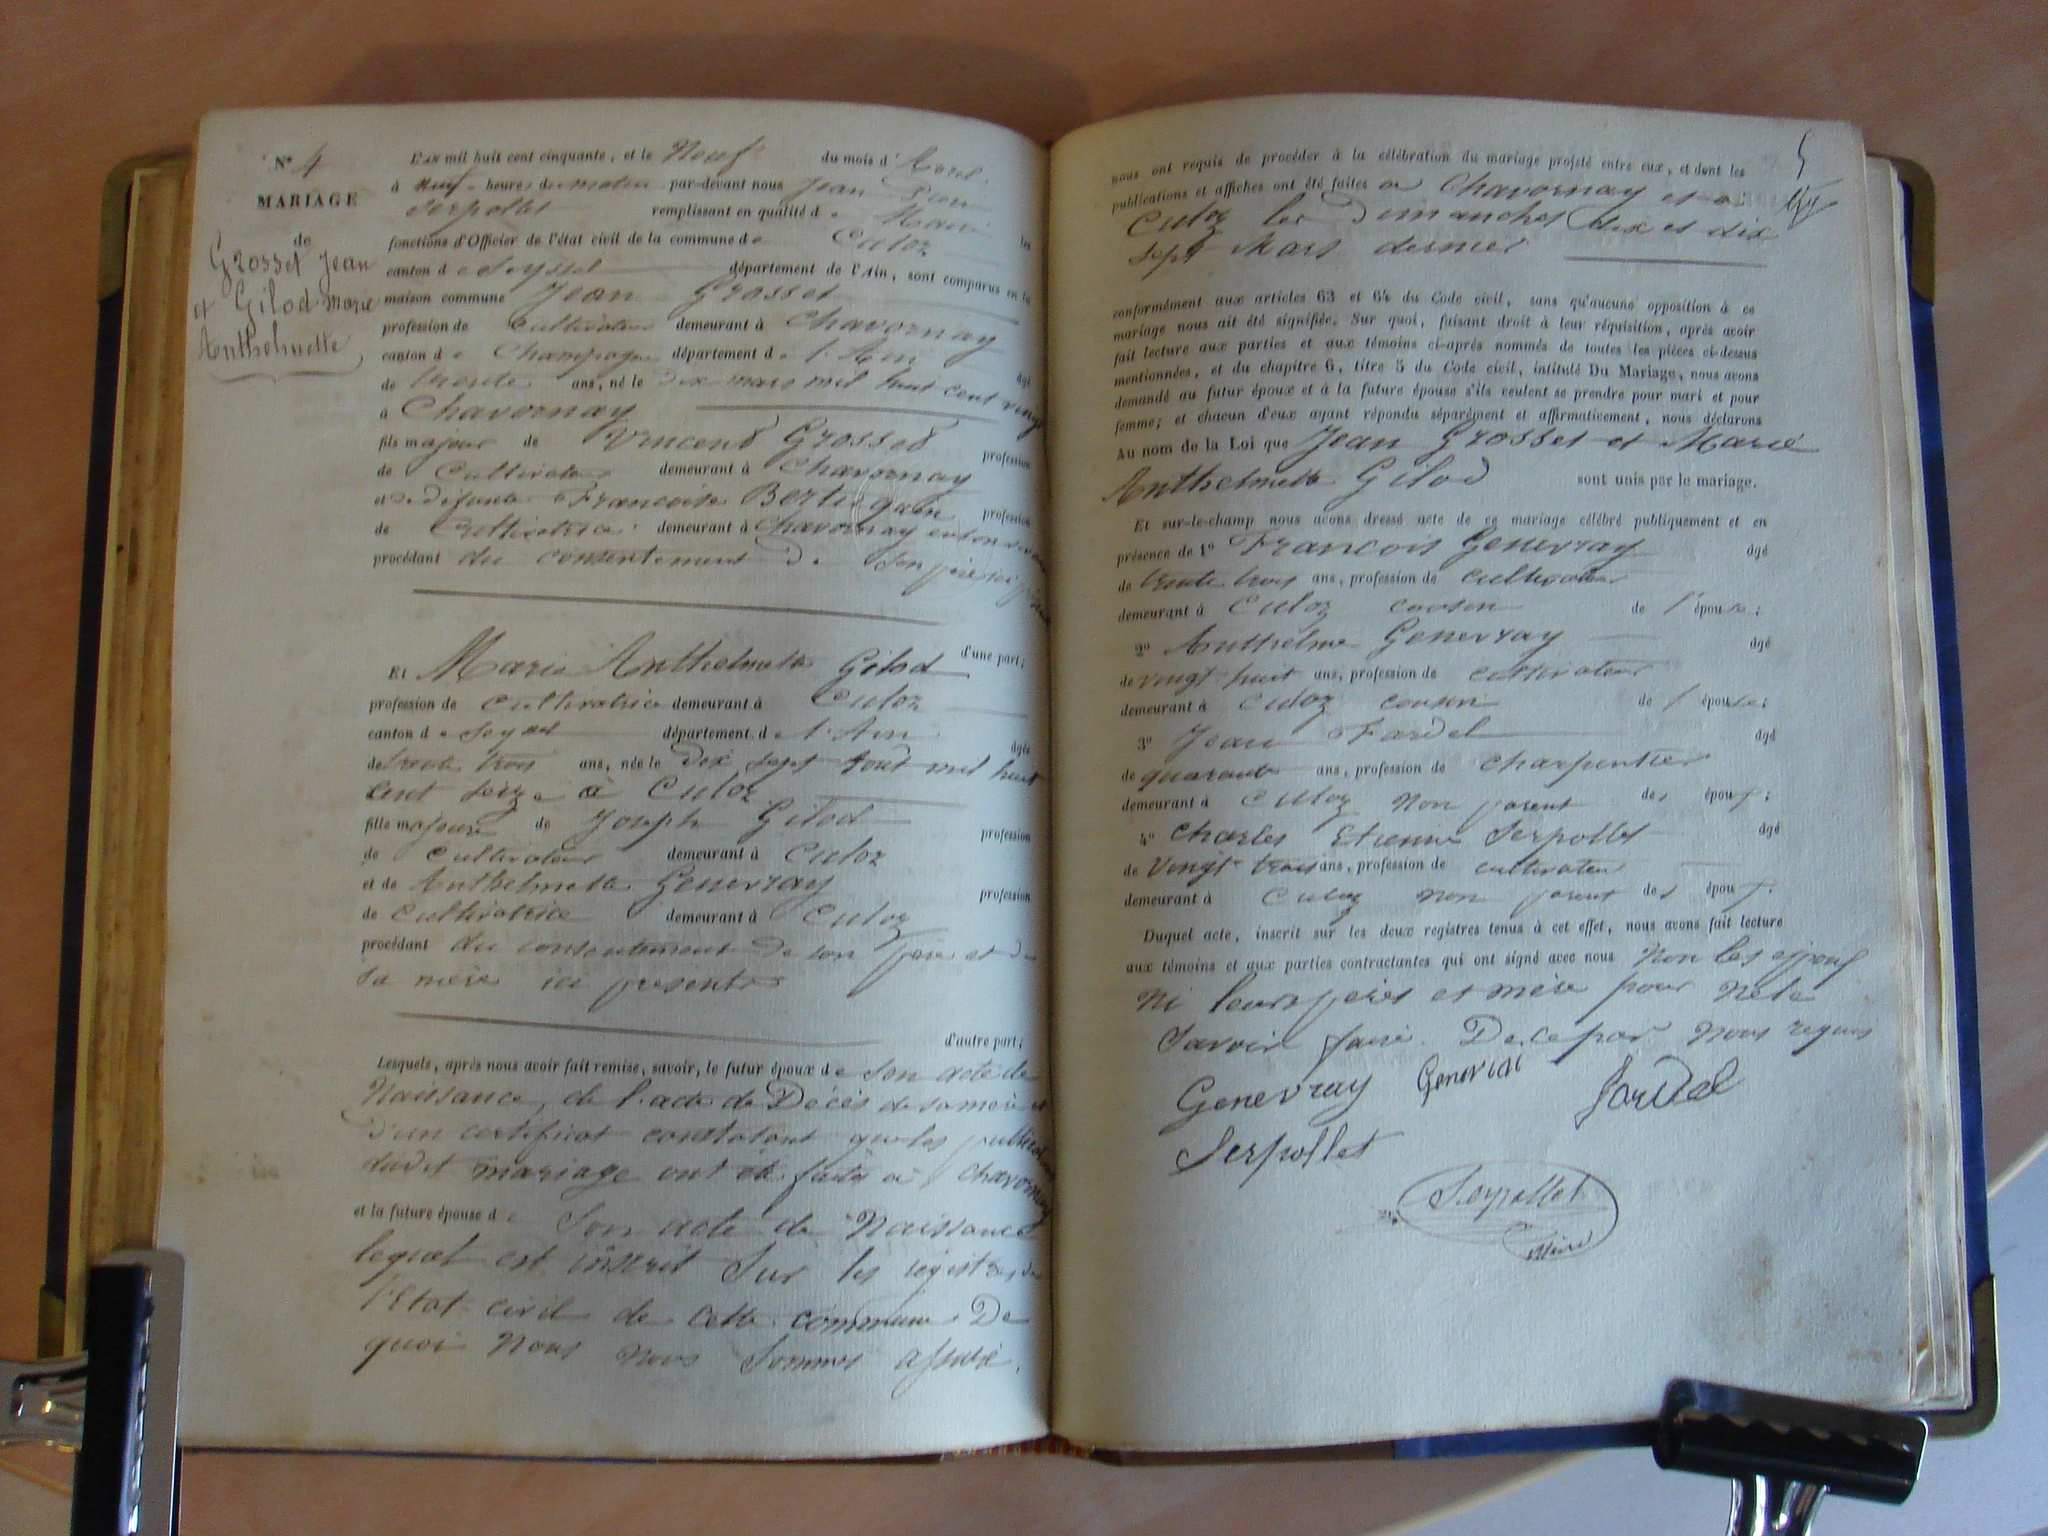 N° 4
MARIAGE
de
Grosset Jean
et Gilod marie
Anthelmette
L'AN mil huit cent cinquante, et le Neuf du mois d'Avril
à neuf heures du matin par-devant nous Jean
Serpollet remplissant en qualité de Maire les
fonctions d'Officier de l'état civil de la commune de Culoz
canton de Seyssel département de l'Ain, sont comparus en la
maison commune Jean Grosset
profession de Cultivateur demeurant à Chavornay
canton de Champagne département de l'Ain âgé
de trente ans, né le dix mars mil huit cent vingt
à Chavornay
fils majeur de Vincent Grosset profession
de Cultivateur demeurant à Chavornay
et de défunte Francoise profession
de Cultivatrice demeurant à Chavornay
procédant du consentement de son père ici
d'une part;
Et Marie Anthelmette Gilod
profession de Cultivatrice demeurant à Culoz
canton de Seyssel département de l'Ain âgée
de trente trois ans, née le dix sept Aout mil huit
cent seize à Culoz
fille majeure de Joseph Gilod profession
de Cultivateur demeurant à Culoz
et de Anthelmette Genevray profession
de Cultivatrice demeurant à Culoz
procédant du consentement de son père et de
sa mère ici presents
d'autre part;
Lesquels, après nous avoir fait remise, savoir, le futur époux de son acte de
Naissance, de l'acte de Décès de sa mère et
d'un certificat constatant que les publications
dudit mariage ont été faites à Chavornay
et la future épouse de son acte de Naissance
lequel est inscrit sur les registres de
l'Etat civil de cette commune De
quoi nous nous sommes assuré.
5
nous ont requis de procéder à la célébration du mariage projeté entre eux, et dont les
publications et affiches ont été faites à Chavornay et à
Culoz les Dimanches dix et dix
sept Mars dernier
conformément aux articles 63 et 64 du Code civil, sans qu'aucune opposition à ce
mariage nous ait été signifiée. Sur quoi, faisant droit à leur réquisition, après avoir
fait lecture aux parties et aux témoins ci-après nommés de toutes les pièces ci-dessus
mentionnées, et du chapitre 6, titre 5 du Code civil, intitulé Du Mariage, nous avons
demandé au futur époux et à la future épouse s'ils veulent se prendre pour mari et pour
femme; et chacun d'eux ayant répondu séparément et affirmativement, nous déclarons
Au nom de la Loi que Jean Grosset et Marie
Anthelmette Gilod sont unis par le mariage.
Et sur-le-champ nous avons dressé acte de ce mariage célébré publiquement et en
présence de 1° Francois Genevray âgé
de trente trois ans, profession de cultivateur
demeurant à Culoz cousin de l'épouse;
2° Anthelme Genevray âgé
de vingt huit ans, profession de cultivateur
demeurant à Culoz cousin de l'épouse;
3° Jean Fardel âgé
de quarante ans, profession de charpentier
demeurant à Culoz non parent des époux;
4° Charles Etienne Serpollet âgé
de vingt trois ans, profession de cultivateur
demeurant à Culoz non parent des époux.
Duquel acte, inscrit sur les deux registres tenus à cet effet, nous avons fait lecture
aux témoins et aux parties contractantes qui ont signé avec nous Non les époux
Ni leurs pères et mère pour ne le
savoir faire. De ce par nous requis
Genevray Genevrai Fardel
Serpollet
Serpollet
Maire